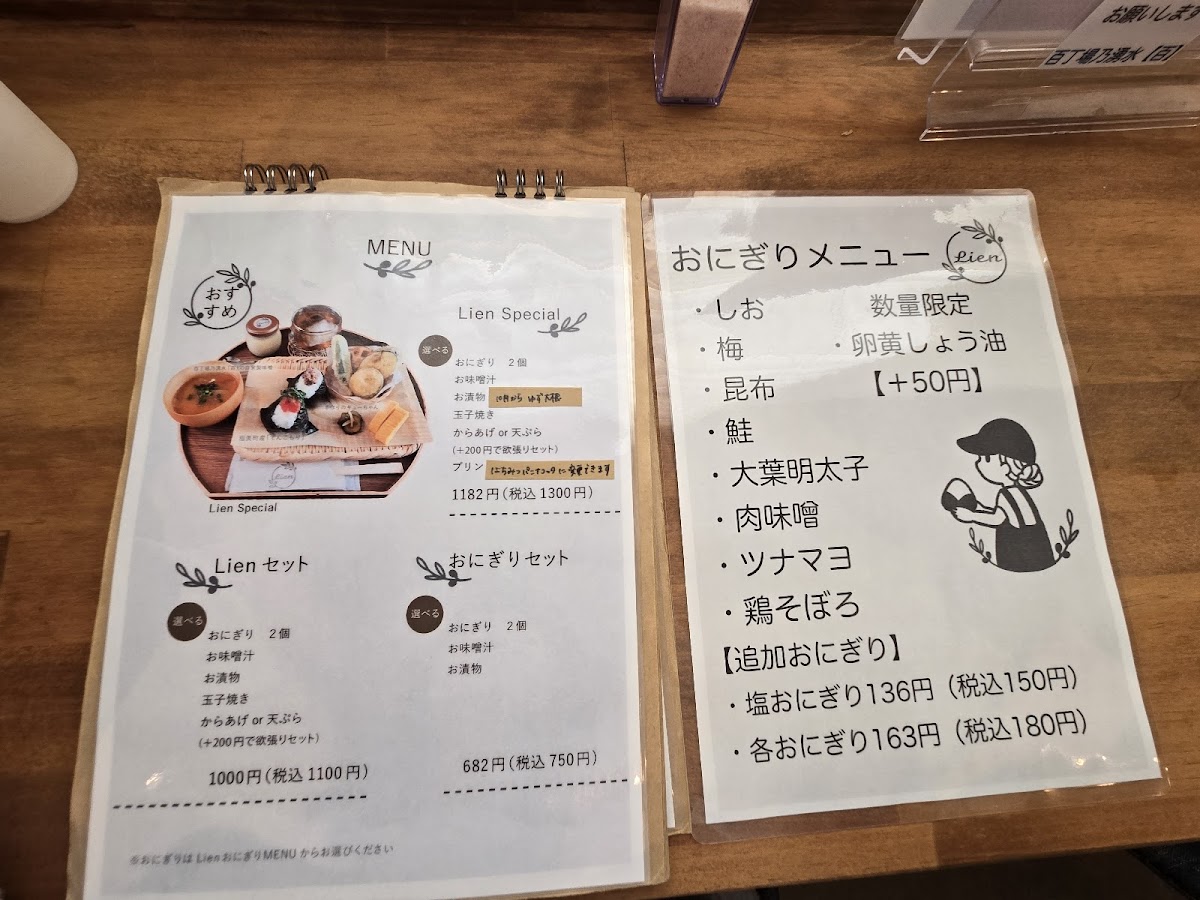 お願いします
百丁場乃湧水【百】
MENU
おす
すめ
Lien Special
Lien Special
選べる
おにぎり 2個
お味噌汁
お漬物 10月から ゆず大根
玉子焼き
からあげ or 天ぷら
(+200円で欲張りセット)
プリン はちみつパンナコッタに変更できます
1182円(税込1300円)
Lien セット
選べる
おにぎり 2個
お味噌汁
お漬物
玉子焼き
からあげ or 天ぷら
(+200円で欲張りセット)
1000円(税込1100円)
おにぎりセット
選べる
おにぎり 2個
お味噌汁
お漬物
682円(税込750円)
※おにぎりは LienおにぎりMENU からお選びください
おにぎりメニュー
Lien
・しお
・梅
・昆布
・鮭
・大葉明太子
・肉味噌
・ツナマヨ
・鶏そぼろ
数量限定
・卵黄しょう油
【+50円】
【追加おにぎり】
・塩おにぎり136円(税込150円)
・各おにぎり163円(税込180円)